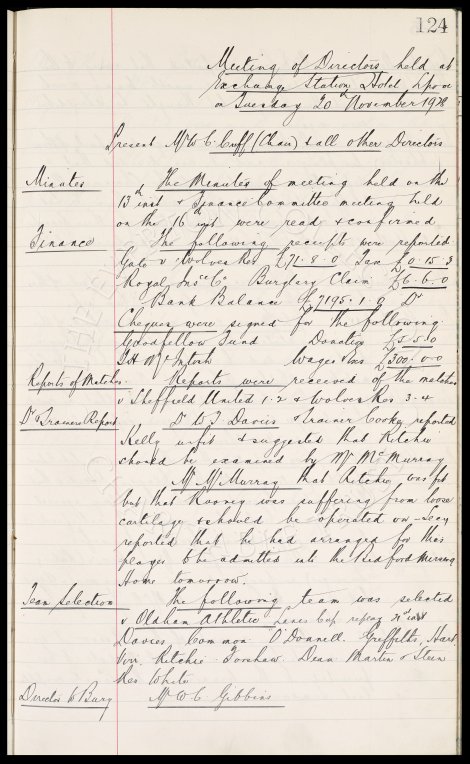 124
Meeting of Directors held at
Exchange Station Hotel Lpool
on Tuesday 20th November 1928
Present Mr W C Cuff (Chair) & all other Directors
Minutes The Minutes of meeting held on the
13th inst & Finance Committee meeting held
on the 16th inst were read & confirmed
Finance The following receipts were reported
Gate v Wolves Res £71.8.0 Tax £0.15.3
Royal Insce Co Burglary Claim £6.6.0
Bank Balance £7195.1.9 Dr
Cheques were signed for the following
Goodfellow Fund Donation £5.5.0
T H McIntosh Wages & Exs £300.0.0
Reports of Matches Reports were received of the matches
v Sheffield United 1.2 & Wolves Res 3.4
Dr & Trainers Report Dr & J Davies & Trainer Cooke reported
Kelly unfit & suggested that Ritchie
should be examined by Mr McMurray
Mr McMurray that Ritchie was fit
but that Rooney was suffering from loose
cartilage & should be operated on
reported that he had arranged for this
player to be admitted into the Nursing
Home tomorrow.
Team Selection The following team was selected
v Oldham Athletic Lancs Cup replay 21st inst
Davies Common O'Donnell. Griffiths, Hart
Virr. Ritchie Forshaw. Dean Martin & Stein
Res White
Director to Bury Mr W C Gibbins